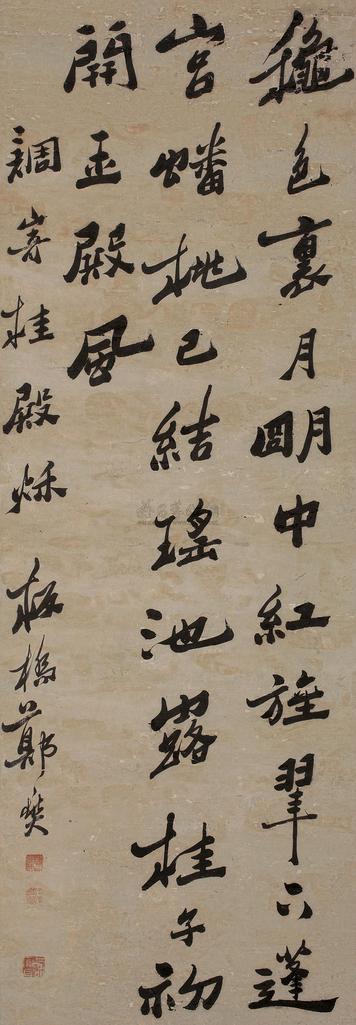 龝色裏月朙中紅旌翠下蓬
宮蟠桃已結瑤池露桂子初
開玉殿風
調寄桂殿秋 板橋鄭燮